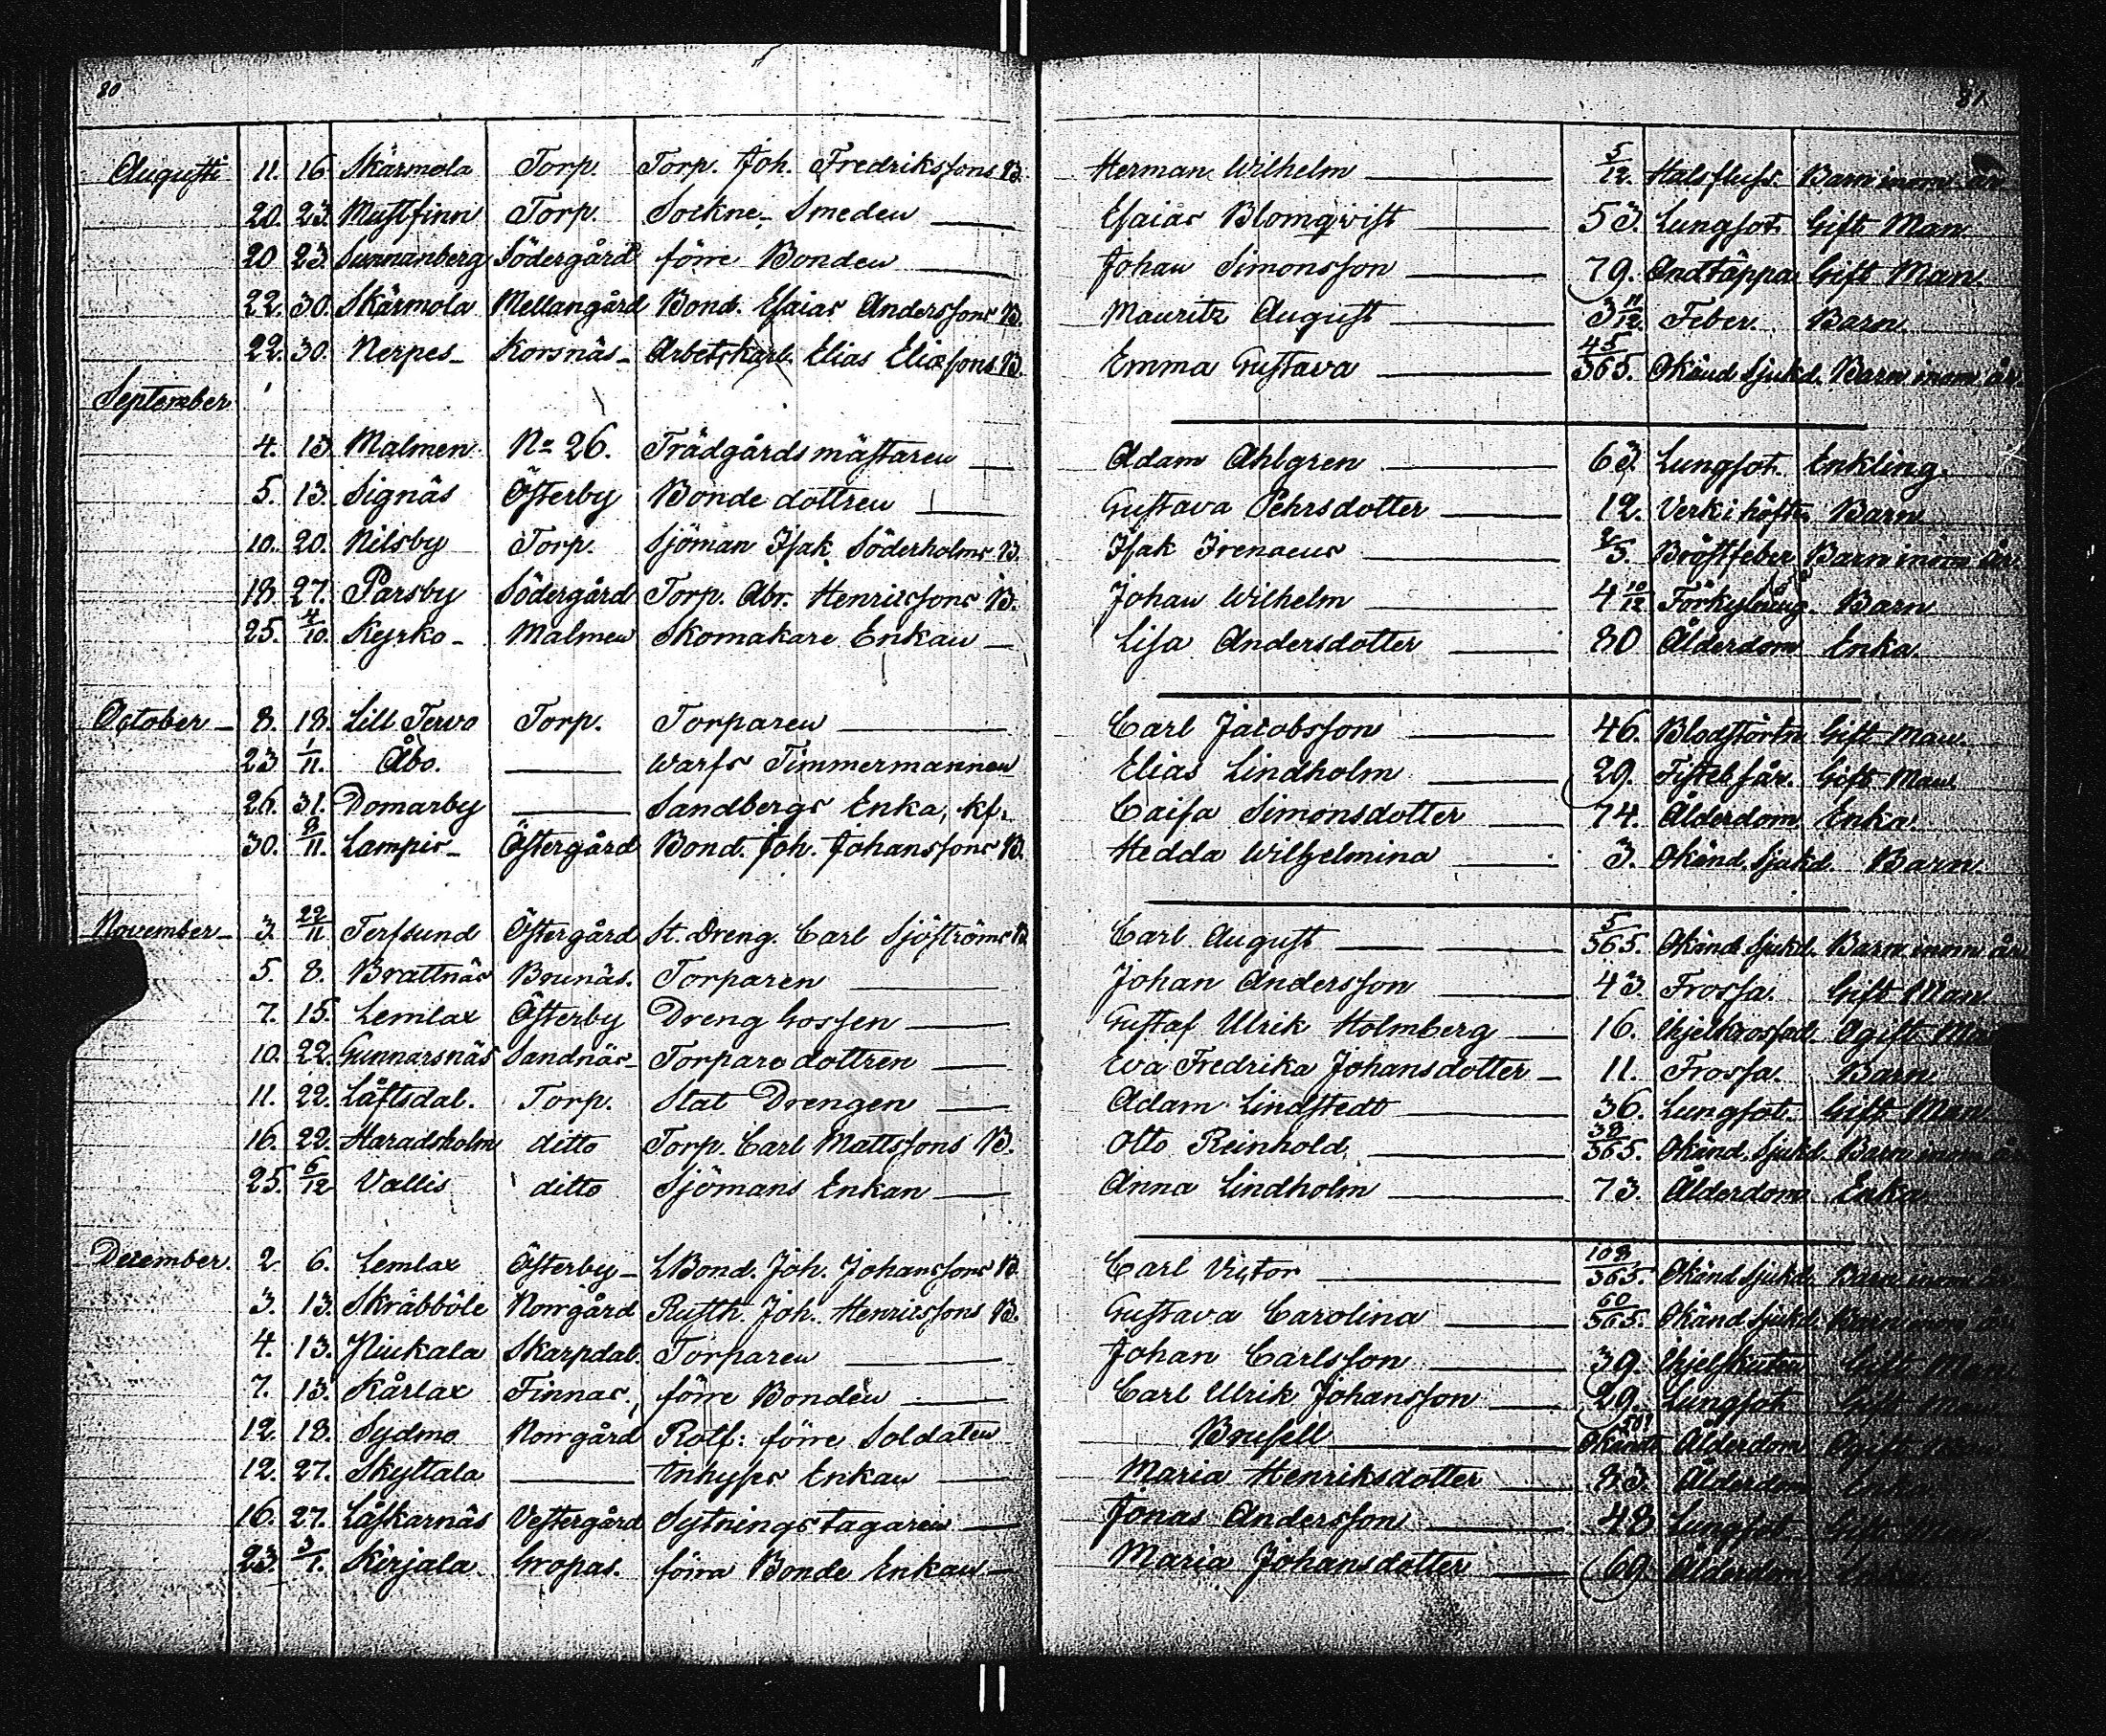 80
81.
Augusti 11. 16 Skärmola Torp. Torp. Joh. Fredrikssons B. Herman Wilhelm 5/12. Halsfluss. Barn inom år
20. 23. Mustfinn Torp. Sockne- Smeden Esaias Blomqvist 53. Lungsot. Gift Man.
20 23. Sunnanberg Södergård förre Bonden Johan Simonsson 79. Andtäppa Gift Man.
22. 30. Skärmola Mellangård Bond. Esaias Anderssons B. Mauritz August 3 11/12. Feber. Barn.
22. 30. Nerpes- Korsnäs- Arbetskarl Elias Eliassons B. Emma Gustava 45/365. Okänd Sjukd. Barn inom år
September
4. 13. Malmen No 26. Trädgårdsmästaren Adam Ahlgren 63. Lungsot. Enkling.
5. 13. Signäs Österby Bonde dottren Gustava Pehrsdotter 12. Verk i höft Barn
10. 20. Nilsby Torp. Sjöman Isak Söderholms B. Isak Irenaeus Bröstfeber Barn inom år.
18. 27. Parsby Södergård Torp. Abr. Henrikssons B. Johan Wilhelm 4 10/12 Förkylning. Barn
25. 4/10. Kyrko- Malmen Skomakare Enkan Lisa Andersdotter 80 Ålderdom Enka.
October 8. 18. Lill Tervo Torp. Torparen Carl Jacobsson 46. Blodstörtn Gift Man.
23 1/11. Åbo. Warfs Timmermannen Elias Lindholm 29. Fistel sår. Gift Man.
26. 31. Domarby Sandbergs Enka, kf. Caisa Simonsdotter 74. Ålderdom Enka.
30. 8/11. Lampis- Östergård Bond. Joh. Johanssons B. Hedda Wilhelmina 3. Okänd. Sjukd. Barn.
November 3. 22/11 Terfsund Östergård St. Dreng. Carl Sjöströms B. Carl August 5/365. Okänd Sjukd. Barn inom år
5. 8. Brattnäs Brunäs. Torparen Johan Andersson 43. Frossa. Gift Man
7. 15. Lemlax Österby Dreng Gossen Gustaf Ulrik Holmberg 16. Ihjelkrossad. Ogift Man
10. 22. Gunnarsnäs Sandnäs- Torpare dottren Eva Fredrika Johansdotter 11. Frossa. Barn
11. 22. Låftsdal. Torp. Stat Drengen Adam Lindstedt 36. Lungsot. Gift Man
16. 22. Haradsholm ditto Torp. Carl Mattssons B. Otto Reinhold 38/365. Okänd. Sjukd. Barn inom år
25. 6/12 Vallis ditto Sjömans Enkan Anna Lindholm 73. Ålderdom Enka
December 2 6. Lemlax Österby- LBond. Joh. Johanssons B. Carl Victor 108/365. Okänd Sjukd. Barn inom år
3. 13. Skräbböle Norrgård Rusth. Joh. Henrikssons B. Gustava Carolina 60/365. Okänd Sjukd. Barn inom år
4. 13. Skarpdal. Torparen Johan Carlsson 39. Ihjelskuten Gift Man
7. 13. Kårlax Finnas. förre Bonden Carl Ulrik Johansson 29. Lungsot Gift Man
12. 18. Sydmo Norrgård Rotf: förre Soldaten Brusell Okänd Ålderdom Ogift Man
12. 27. Skyttala Inhyses Enkan Maria Henriksdotter 83. Ålderdom Enka
16. 27. Låskarnäs Vestergård Sytningstagaren Jonas Andersson 48 Lungsot Gift
23. Kirjala Gropas. förra Bonde Enkan Maria Johansdotter 69. Ålderdom